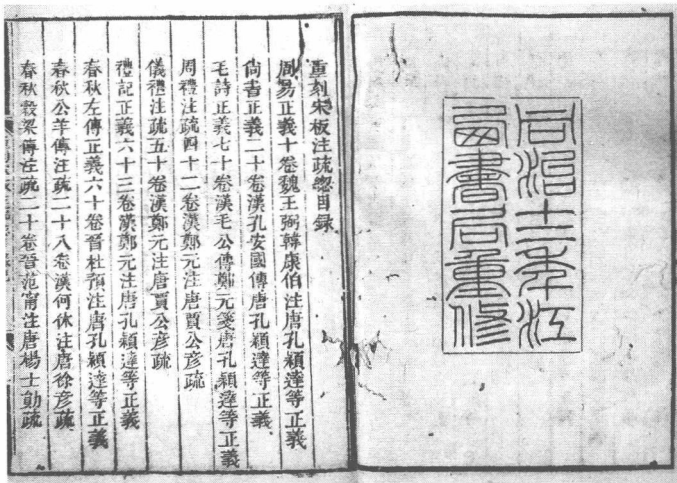 同治十二年江
西書局重修
重刻宋板注疏緫目錄
周易正義十卷魏王弼韓康伯注唐孔穎達等正義
尚書正義二十卷漢孔安國傳唐孔穎達等正義
毛詩正義七十卷漢毛公傳鄭元箋唐孔穎達等正義
周禮注疏四十二卷漢鄭元注唐賈公彥疏
儀禮注疏五十卷漢鄭元注唐賈公彥疏
禮記正義六十三卷漢鄭元注唐孔穎達等正義
春秋左傳正義六十卷晉杜預注唐孔穎達等正義
春秋公羊傳注疏二十八卷漢何休注唐徐彥疏
春秋穀梁傳注疏二十卷晉范甯注唐楊士勛疏